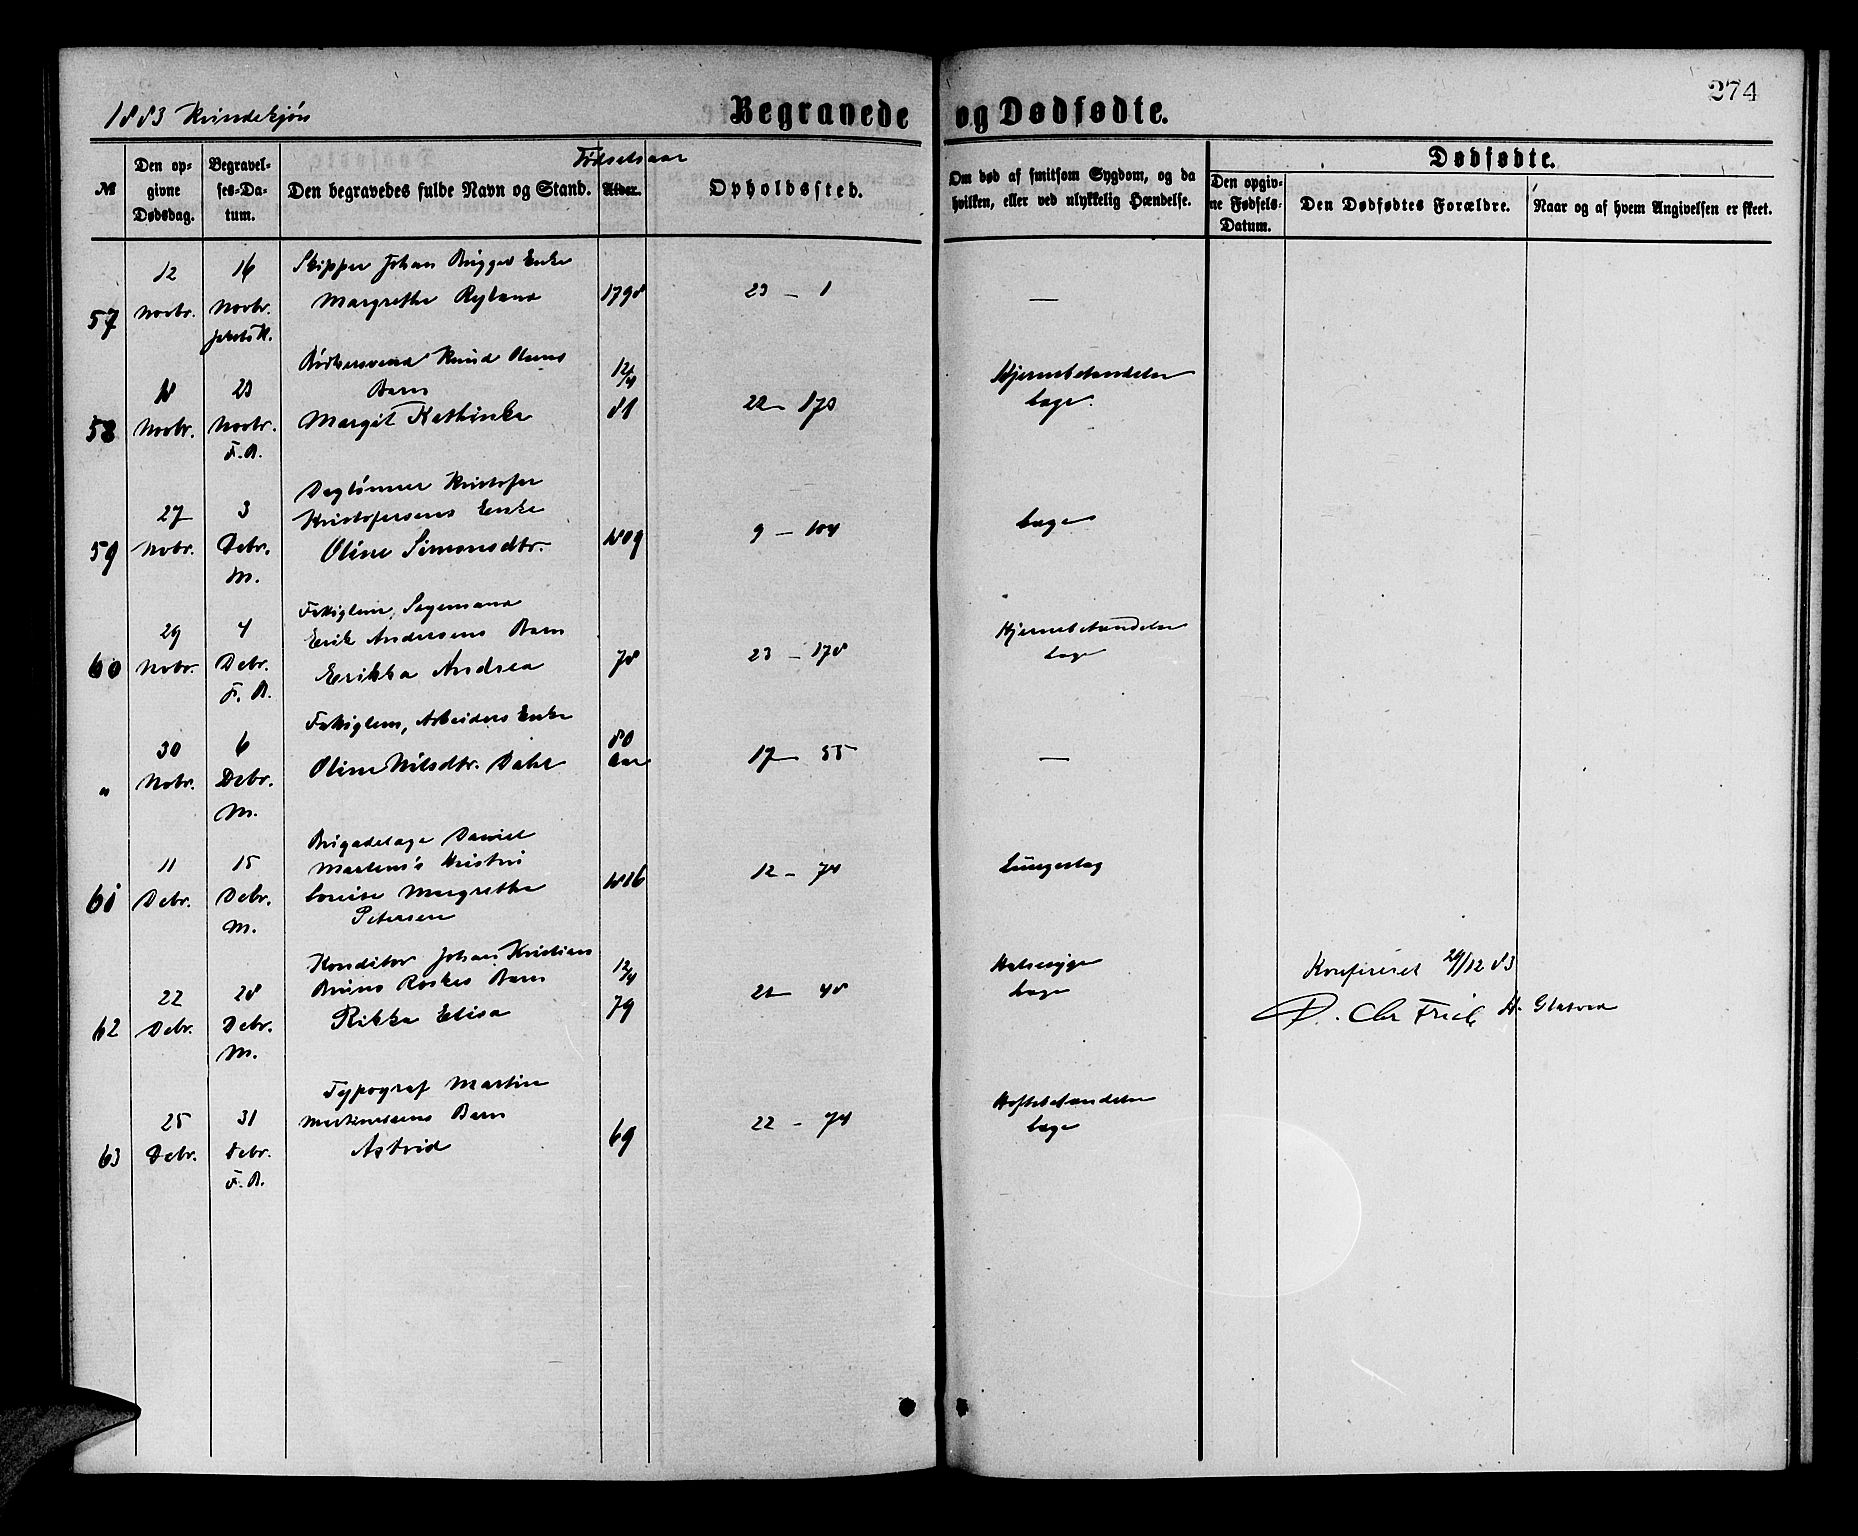 274
1883 Kvindekjøn
Begravede og Dødfødte.
№
Den opgivne Dødsdag.
Begravelses-Datum.
Den begravedes fulde Navn og Stand.
Fødselsaar
Alder.
Opholdssted.
Om død af smitsom Sygdom, og da hvilken, eller ved ulykkelig Hændelse.
Dødfødte.
Den opgivne Fødsels-Datum.
Den Dødfødtes Forældre.
Naar og af hvem Angivelsen er skeet.
57
12 Novbr.
16 Novbr.
Skipper Johan Brügger Enke
Margrethe Ryland
1798
23 – 1
—
58
18 Novbr.
23 Novbr.
F. A.
Bødkersvend Knud Olsens
Barn
Margit Kathinka
12/4 81
22 – 173
Hjernebetændelse
Læge
59
27 Novbr.
3 Debr.
M.
Daglønner Kristofer
Kristofersens Enke
Oline Simonsdtr.
1809
9 – 104
Læge
60
29 Novbr.
4 Debr.
F. A.
Fattiglem, Sagemand
Erik Andersens Barn
Erikka Andrea
78
23 – 178
Hjernebetændelse
Læge
"
30 Nobr.
6 Debr.
M.
Fattiglem, Arbeiders Enke
Oline Nilsdtr. Dahl
80 Aar
17 – 55
—
61
11 Debr.
15 Debr.
M.
Brigadelæge Daniel
Martens's Hustru
Louise Margrethe
Petersen
1816
12 – 74
Lungeslag
62
22 Debr.
28 Debr.
M.
Konditor Johan Kristian
Bruns Roskes Barn
Rikka Elisa
12/4 79
21 – 48
Halssyge
Læge
Konfereret 29/12 83
D. Chr Frich A. Glatved
63
25 Debr.
31 Debr.
F. A.
Typograf Martin
Martinussens Barn
Astrid
69
22 – 74
Hoftebetændelse
Læge